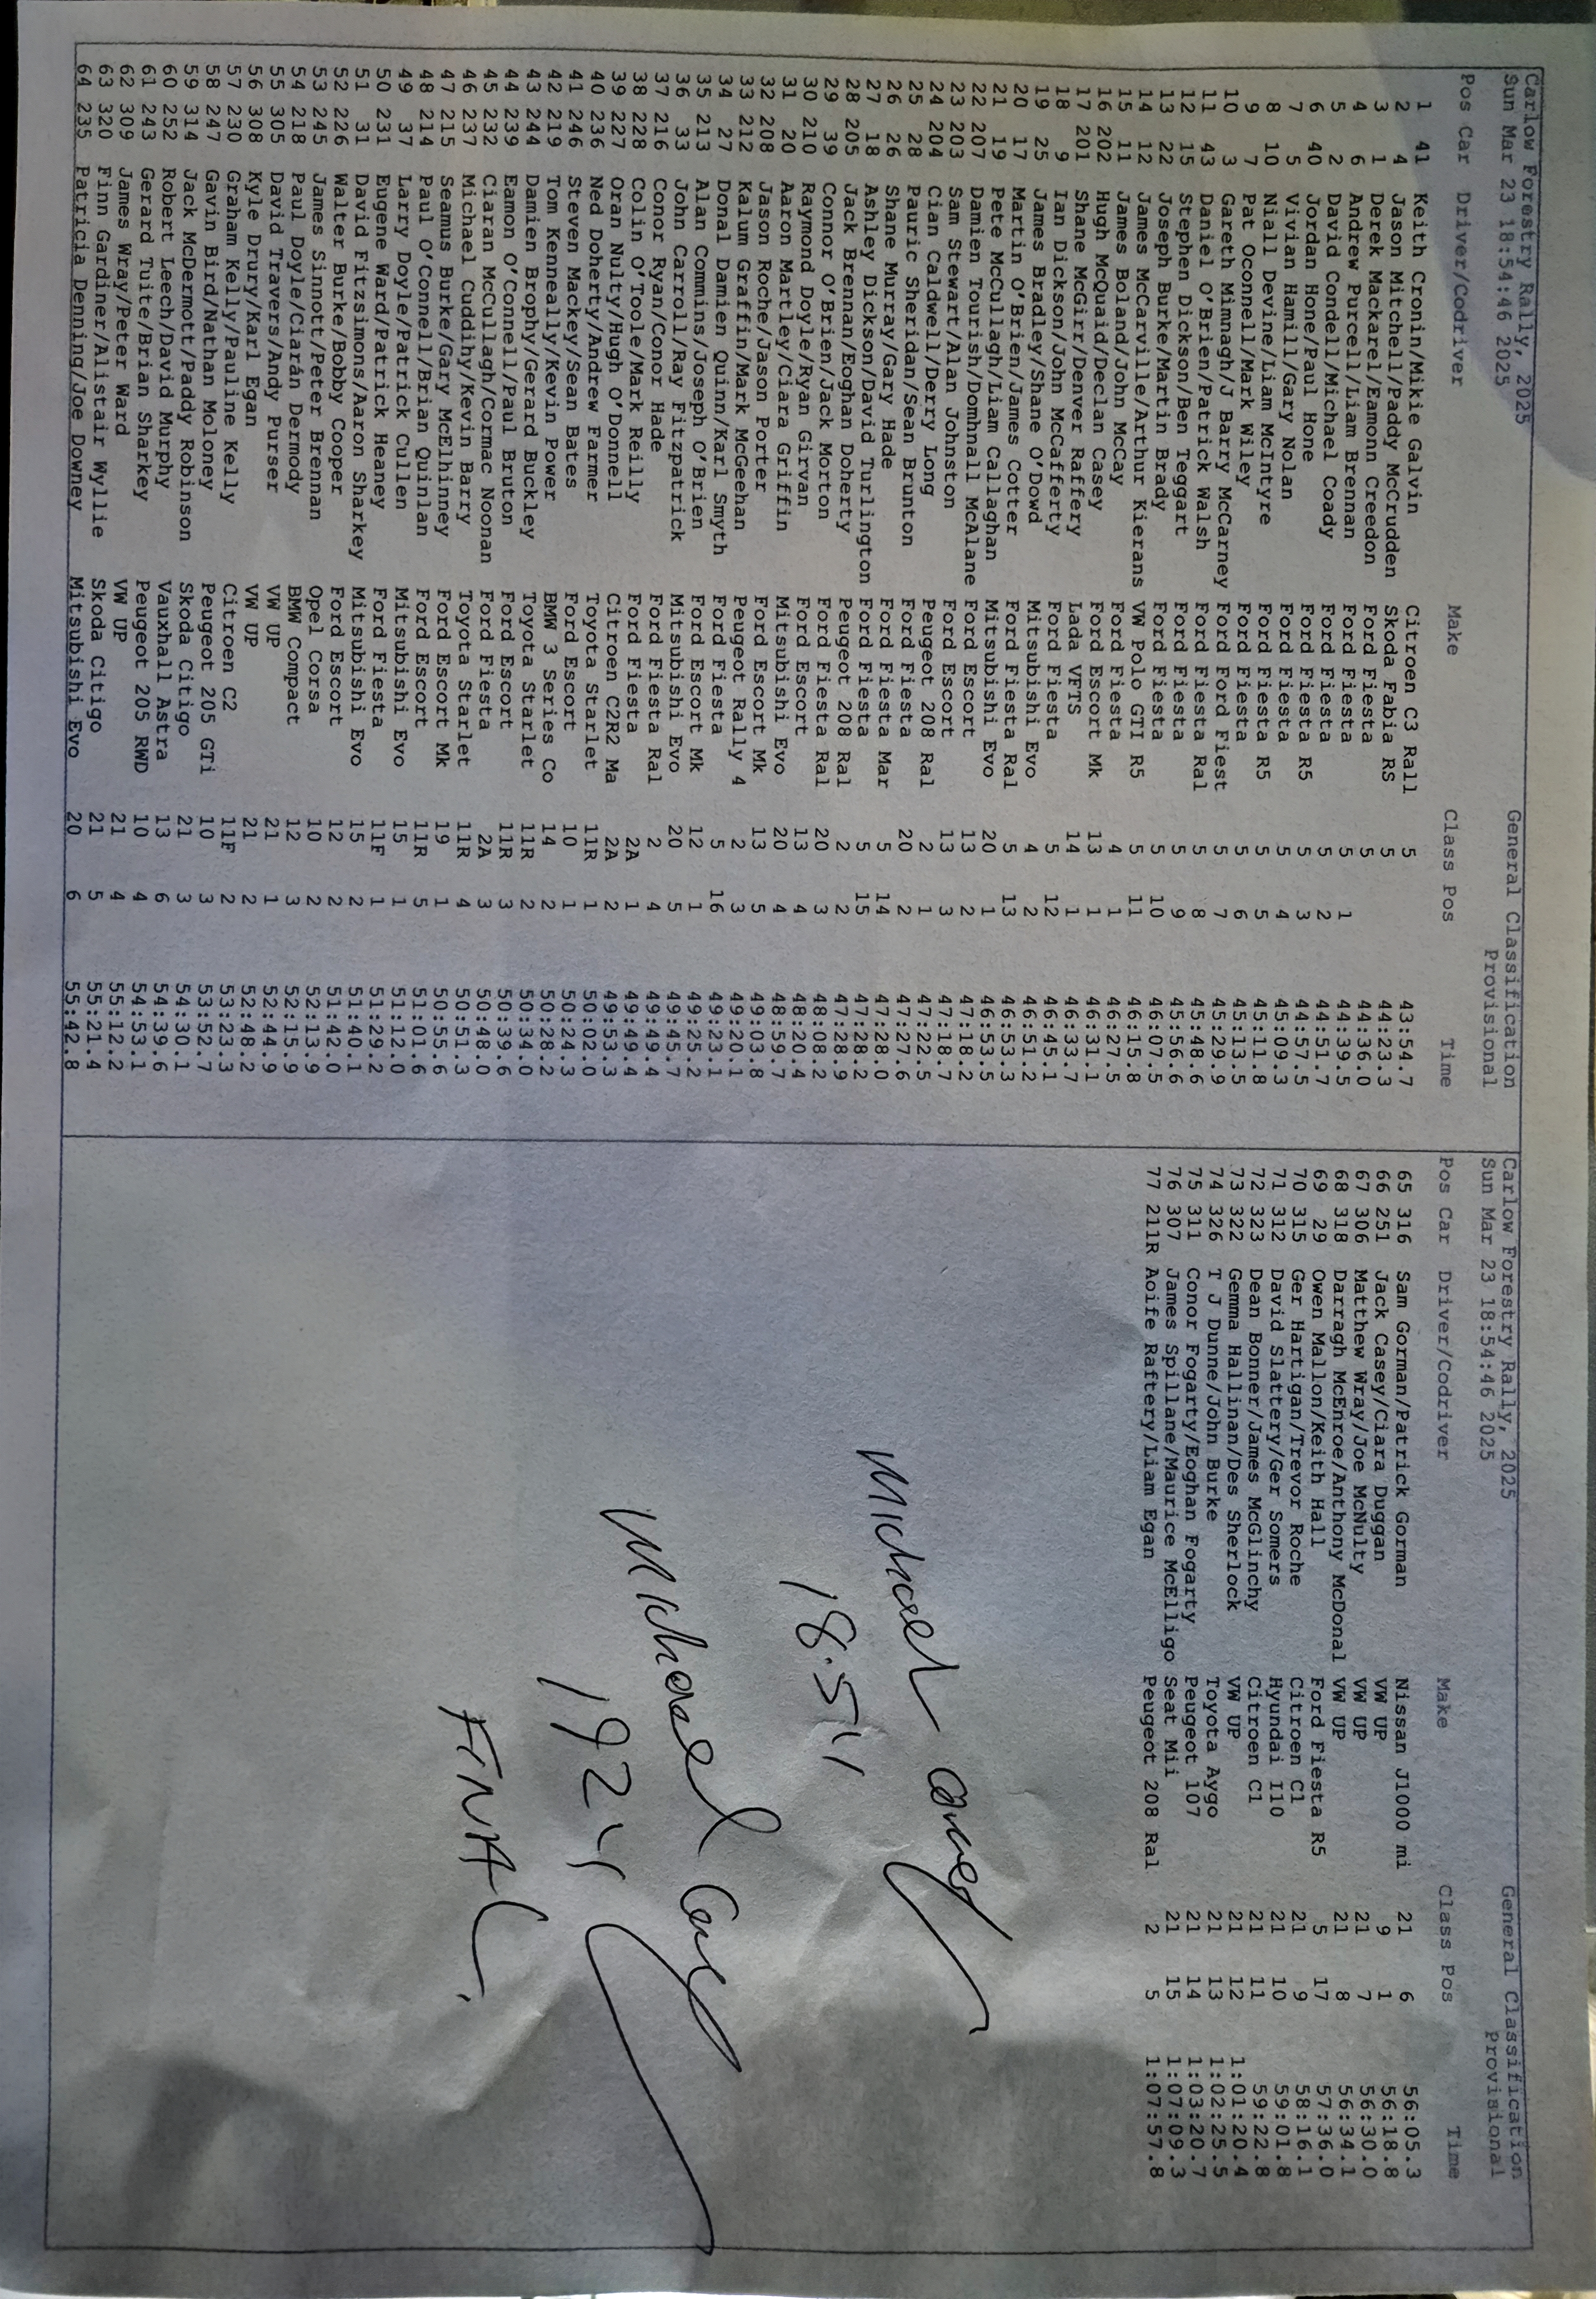 Carlow Forestry Rally, 2025 General Classification
Sun Mar 23 18:54:46 2025 Provisional
Pos Car Driver/Codriver Make Class Pos Time
1 41 Keith Cronin/Mikie Galvin Citroen C3 Rall 5 43:54.7
2 4 Jason Mitchell/Paddy McCrudden Skoda Fabia RS 5 44:23.3
3 1 Derek Mackarel/Eamonn Creedon Ford Fiesta 5 44:36.0
4 6 Andrew Purcell/Liam Brennan Ford Fiesta 5 1 44:39.5
5 2 David Condell/Michael Coady Ford Fiesta 5 2 44:51.7
6 40 Jordan Hone/Paul Hone Ford Fiesta R5 5 3 44:57.5
7 5 Vivian Hamill/Gary Nolan Ford Fiesta 5 4 45:09.3
8 10 Niall Devine/Liam McIntyre Ford Fiesta R5 5 5 45:11.8
9 7 Pat Oconnell/Mark Wiley Ford Fiesta 5 6 45:13.5
10 3 Gareth Mimnagh/J Barry McCarney Ford Ford Fiest 5 7 45:29.9
11 43 Daniel O'Brien/Patrick Walsh Ford Fiesta Ral 5 8 45:48.6
12 15 Stephen Dickson/Ben Teggart Ford Fiesta 5 9 45:56.6
13 22 Joseph Burke/Martin Brady Ford Fiesta 5 10 46:07.5
14 12 James McCarville/Arthur Kierans VW Polo GTI R5 5 11 46:15.8
15 11 James Boland/John McCay Ford Fiesta 4 1 46:27.5
16 202 Hugh McQuaid/Declan Casey Ford Escort Mk 13 1 46:31.1
17 201 Shane McGirr/Denver Raffery Lada VFTS 14 1 46:33.7
18 9 Ian Dickson/John McCafferty Ford Fiesta 5 12 46:45.1
19 25 James Bradley/Shane O'Dowd Mitsubishi Evo 4 2 46:51.2
20 17 Martin O'Brien/James Cotter Ford Fiesta Ral 5 13 46:53.3
21 19 Pete McCullagh/Liam Callaghan Mitsubishi Evo 20 1 46:53.5
22 207 Damien Tourish/Domhnall McAlane Ford Escort 13 2 47:18.2
23 203 Sam Stewart/Alan Johnston Ford Escort 13 3 47:18.7
24 204 Cian Caldwell/Derry Long Peugeot 208 Ral 2 1 47:22.5
25 28 Pauric Sheridan/Sean Brunton Ford Fiesta 20 2 47:27.6
26 26 Shane Murray/Gary Hade Ford Fiesta Mar 5 14 47:28.0
27 18 Ashley Dickson/David Turlington Ford Fiesta 5 15 47:28.2
28 205 Jack Brennan/Eoghan Doherty Peugeot 208 Ral 2 2 47:28.9
29 39 Connor O'Brien/Jack Morton Ford Fiesta Ral 20 3 48:08.2
30 210 Raymond Doyle/Ryan Girvan Ford Escort 13 4 48:20.4
31 20 Aaron Martley/Ciara Griffin Mitsubishi Evo 20 4 48:59.7
32 208 Jason Roche/Jason Porter Ford Escort Mk 13 5 49:03.8
33 212 Kalum Graffin/Mark McGeehan Peugeot Rally 4 2 3 49:20.1
34 27 Donal Damien Quinn/Karl Smyth Ford Fiesta 5 16 49:23.1
35 213 Alan Commins/Joseph O'Brien Ford Escort Mk 12 1 49:25.2
36 33 John Carroll/Ray Fitzpatrick Mitsubishi Evo 20 5 49:45.7
37 216 Conor Ryan/Conor Hade Ford Fiesta Ral 2 4 49:49.4
38 228 Colin O'Toole/Mark Reilly Ford Fiesta 2A 1 49:49.4
39 227 Oran Nulty/Hugh O'Donnell Citroen C2R2 Ma 2A 2 49:53.3
40 236 Ned Doherty/Andrew Farmer Toyota Starlet 11R 1 50:02.0
41 246 Steven Mackey/Sean Bates Ford Escort 10 1 50:24.3
42 219 Tom Kenneally/Kevin Power BMW 3 Series Co 14 2 50:28.2
43 244 Damien Brophy/Gerard Buckley Toyota Starlet 11R 2 50:34.0
44 239 Eamon O'Connell/Paul Bruton Ford Escort 11R 3 50:39.6
45 232 Ciaran McCullagh/Cormac Noonan Ford Fiesta 2A 3 50:48.0
46 237 Michael Cuddihy/Kevin Barry Toyota Starlet 11R 4 50:51.3
47 215 Seamus Burke/Gary McElhinney Ford Escort Mk 19 1 50:55.6
48 214 Paul O'Connell/Brian Quinlan Ford Escort 11R 5 51:01.6
49 37 Larry Doyle/Patrick Cullen Mitsubishi Evo 15 1 51:12.0
50 231 Eugene Ward/Patrick Heaney Ford Fiesta 11F 1 51:29.2
51 31 David Fitzsimons/Aaron Sharkey Mitsubishi Evo 15 2 51:40.1
52 226 Walter Burke/Bobby Cooper Ford Escort 12 2 51:42.0
53 245 James Sinnott/Peter Brennan Opel Corsa 10 2 52:13.9
54 218 Paul Doyle/Ciarán Dermody BMW Compact 12 3 52:15.9
55 305 David Travers/Andy Purser VW UP 21 1 52:44.9
56 308 Kyle Drury/Karl Egan VW UP 21 2 52:48.2
57 230 Graham Kelly/Pauline Kelly Citroen C2 11F 2 53:23.3
58 247 Gavin Bird/Nathan Moloney Peugeot 205 GTi 10 3 53:52.7
59 314 Jack McDermott/Paddy Robinson Skoda Citigo 21 3 54:30.1
60 252 Robert Leech/David Murphy Vauxhall Astra 13 6 54:39.6
61 243 Gerard Tuite/Brian Sharkey Peugeot 205 RWD 10 4 54:53.1
62 309 James Wray/Peter Ward VW UP 21 4 55:12.2
63 320 Finn Gardiner/Alistair Wyllie Skoda Citigo 21 5 55:21.4
64 235 Patricia Denning/Joe Downey Mitsubishi Evo 20 6 55:42.8
Carlow Forestry Rally, 2025 General Classification
Sun Mar 23 18:54:46 2025 Provisional
Pos Car Driver/Codriver Make Class Pos Time
65 316 Sam Gorman/Patrick Gorman Nissan J1000 mi 21 6 56:05.3
66 251 Jack Casey/Ciara Duggan VW UP 9 1 56:18.8
67 306 Matthew Wray/Joe McNulty VW UP 21 7 56:30.0
68 318 Darragh McEnroe/Anthony McDonal VW UP 21 8 56:34.1
69 29 Owen Mallon/Keith Hall Ford Fiesta R5 5 17 57:36.0
70 315 Ger Hartigan/Trevor Roche Citroen C1 21 9 58:16.1
71 312 David Slattery/Ger Somers Hyundai I10 21 10 59:01.8
72 323 Dean Bonner/James McGlinchy Citroen C1 21 11 59:22.8
73 322 Gemma Hallinan/Des Sherlock VW UP 21 12 1:01:20.4
74 326 T J Dunne/John Burke Toyota Aygo 21 13 1:02:25.5
75 311 Conor Fogarty/Eoghan Fogarty Peugeot 107 21 14 1:03:20.7
76 307 James Spillane/Maurice McElligo Seat Mii 21 15 1:07:09.3
77 211R Aoife Raftery/Liam Egan Peugeot 208 Ral 2 5 1:07:57.8
Michael
18.54
Michael
1924
FINAL.